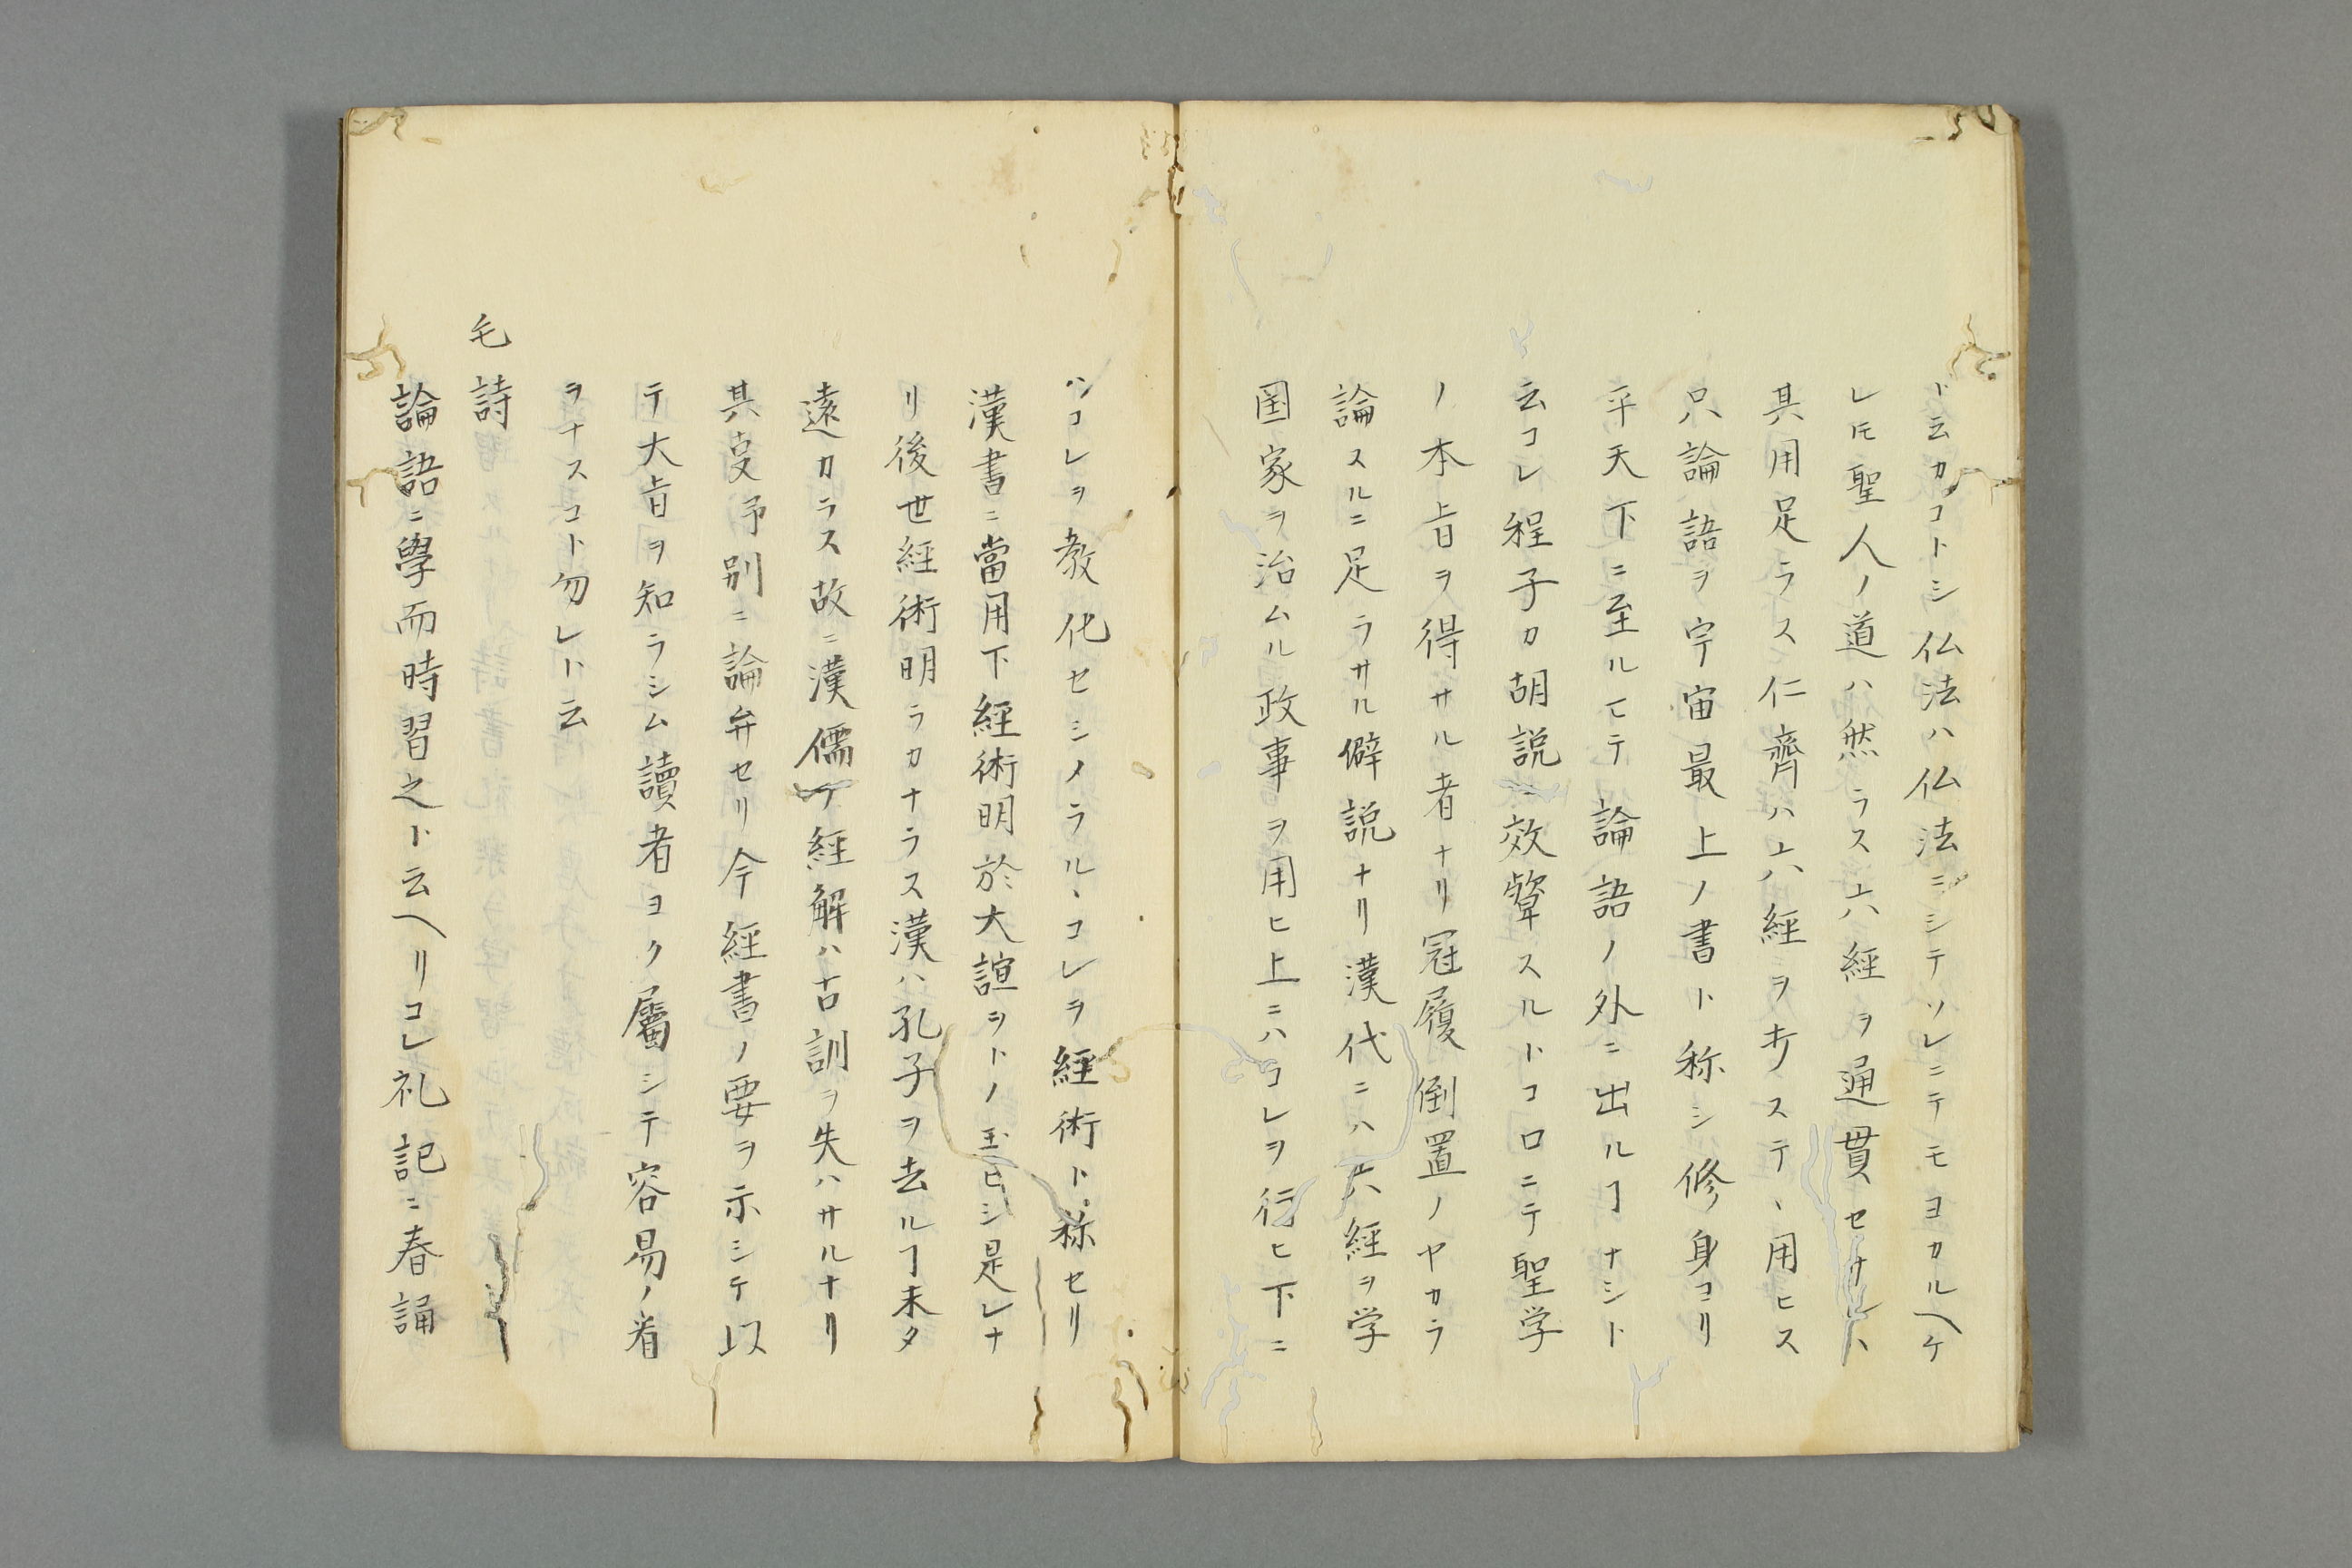 ト云カコトシ仏法ハ仏法ニシテソレニテモヨカルヘケ
レ𪜈聖人ノ道ハ然ラス六経ヲ通貫セサレハ
其用足ラス仁齊ハ六経ヲ弃ステヽ用ヒス
只論語ヲ宇宙最上ノ書ト称シ修身ヨリ
平天下ニ至ルマテ論語ノ外ニ出ルヿナシト
云コレ程子カ胡説ニ效顰スルトコロニテ聖学
ノ本旨ヲ得サル者ナリ冠履倒置ノヤカラ
論スルニ足ラサル僻説ナリ漢代ニハ六経ヲ学
国家ヲ治ムル政事ヲ用ヒ上ニハコレヲ行ヒ下ニ
ハコレヲ教化セシメラルヽコレヲ経術ト称セリ
漢書ニ當用下経術明於大誼ヲトノ玉ヒシ是レナ
リ後世経術明ラカナラス漢ハ孔子ヲ去ルヿ未タ
遠カラス故ニ漢儒ノ経解ハ古訓ヲ失ハサルナリ
其叓予別ニ論弁セリ今経書ノ要ヲ示シテ以
テ大旨ヲ知ラシム讀者ヨク屬シテ容易ノ看
ヲナスコト勿レト云
毛詩
論語ニ學而時習之ト云ヘリコレ礼記ニ春誦